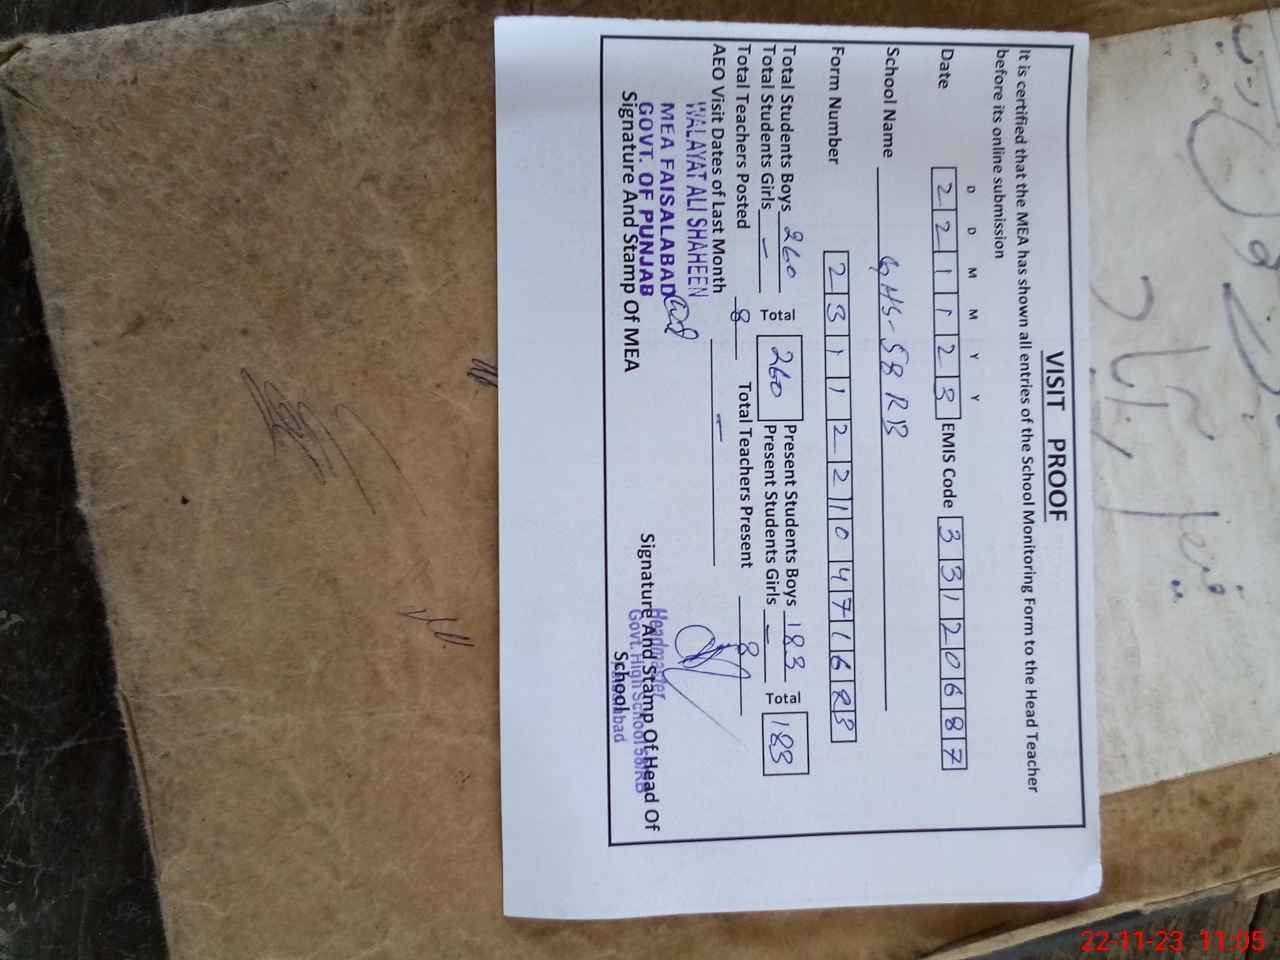 VISIT PROOF
It is certified that the MEA has shown all entries of the School Monitoring Form to the Head Teacher
before its online submission
D D M M Y Y
Date 2 2 1 1 2 3 EMIS Code 3 3 1 2 0 6 8 7
School Name GHS-58 RB
Form Number 2 3 1 1 2 2 1 0 4 7 1 6 8 3
Total Students Boys 260 Total 260 Present Students Boys 183 Total 183
Total Students Girls - Present Students Girls -
Total Teachers Posted 8 Total Teachers Present 8
AEO Visit Dates of Last Month -
WALAYAT ALI SHAHEEN
MEA FAISALABAD
GOVT. OF PUNJAB
Signature And Stamp Of MEA
Headmaster
Signature And Stamp Of Head Of
Govt. High School 58/RB
School
22-11-23 11:05